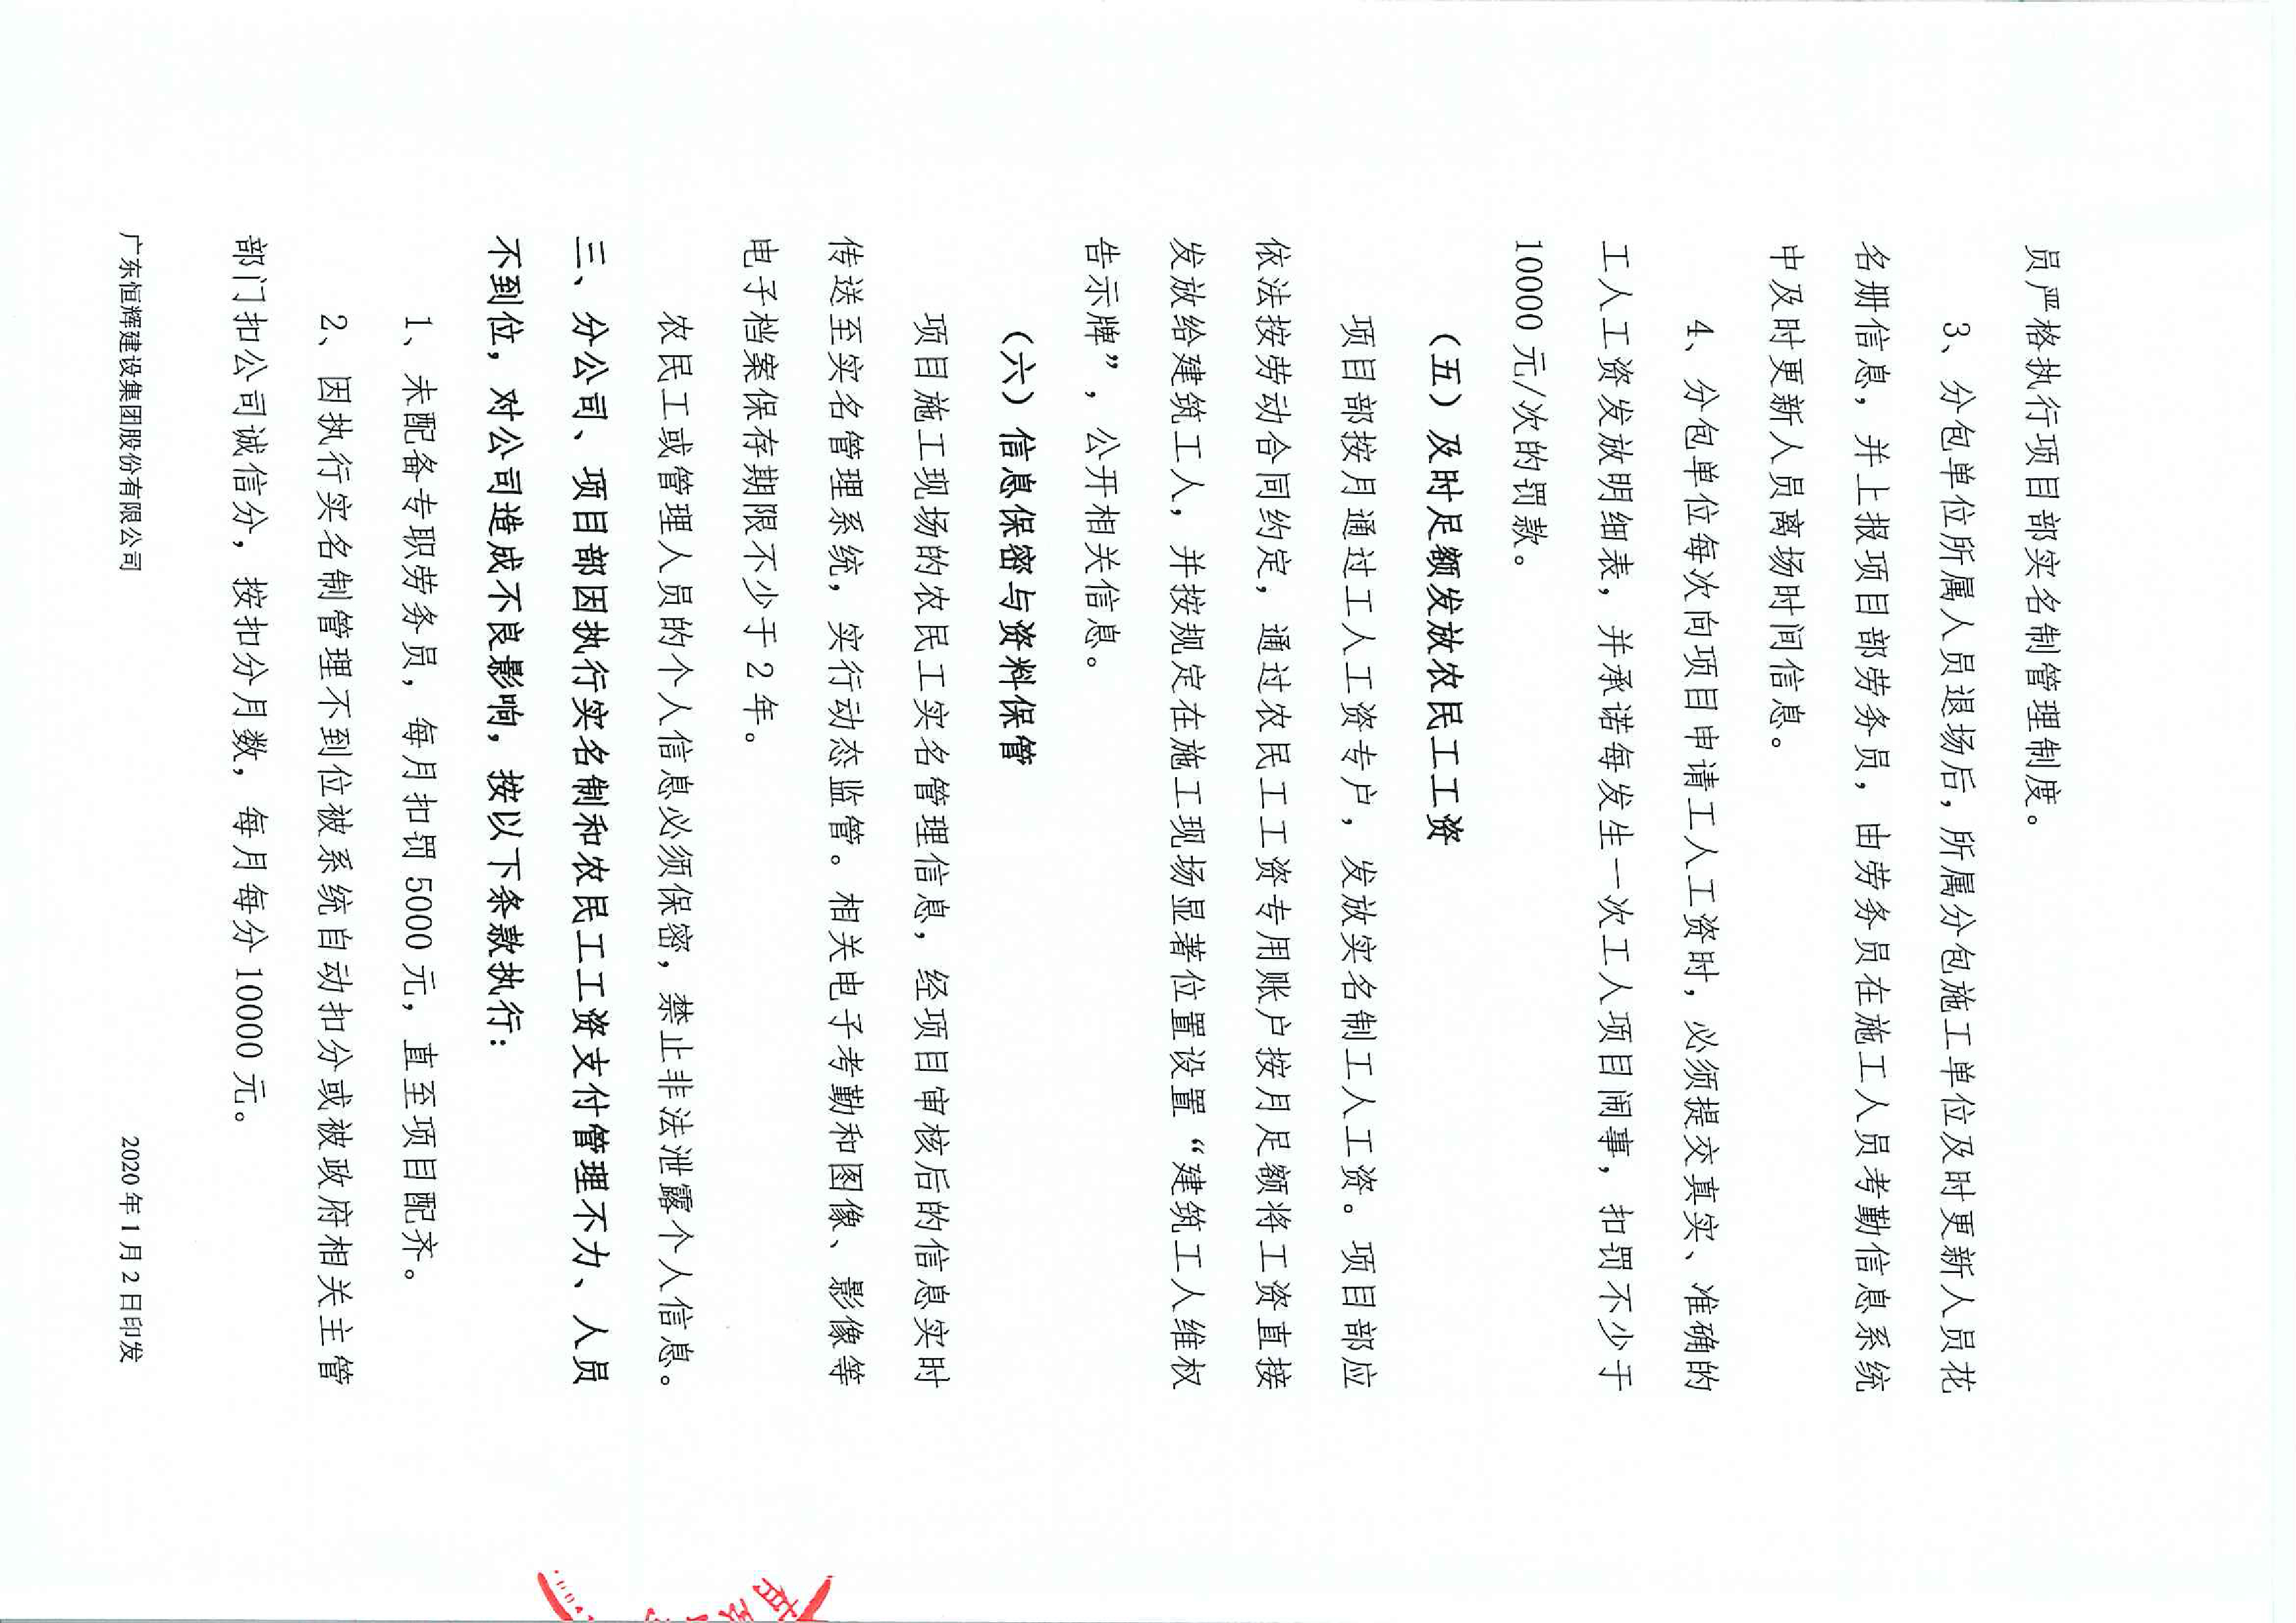 员严格执行项目部实名制管理制度。
3、分包单位所属人员退场后，所属分包施工单位及时更新人员花
名册信息，并上报项目部劳务员，由劳务员在施工人员考勤信息系统
中及时更新人员离场时间信息。
4、分包单位每次向项目申请工人工资时，必须提交真实、准确的
工人工资发放明细表，并承诺每发生一次工人项目闹事，扣罚不少于
10000 元/次的罚款。
（五）及时足额发放农民工工资
项目部按月通过工人工资专户，发放实名制工人工资。项目部应
依法按劳动合同约定，通过农民工工资专用账户按月足额将工资直接
发放给建筑工人，并按规定在施工现场显著位置设置“建筑工人维权
告示牌”，公开相关信息。
（六）信息保密与资料保管
项目施工现场的农民工实名管理信息，经项目审核后的信息实时
传送至实名管理系统，实行动态监管。相关电子考勤和图像、影像等
电子档案保存期限不少于 2 年。
农民工或管理人员的个人信息必须保密，禁止非法泄露个人信息。
三、分公司、项目部因执行实名制和农民工工资支付管理不力、人员
不到位，对公司造成不良影响，按以下条款执行：
1、未配备专职劳务员，每月扣罚 5000 元，直至项目配齐。
2、因执行实名制管理不到位被系统自动扣分或被政府相关主管
部门扣公司诚信分，按扣分月数，每月每分 10000 元。
广东恒辉建设集团股份有限公司 2020 年 1 月 2 日印发